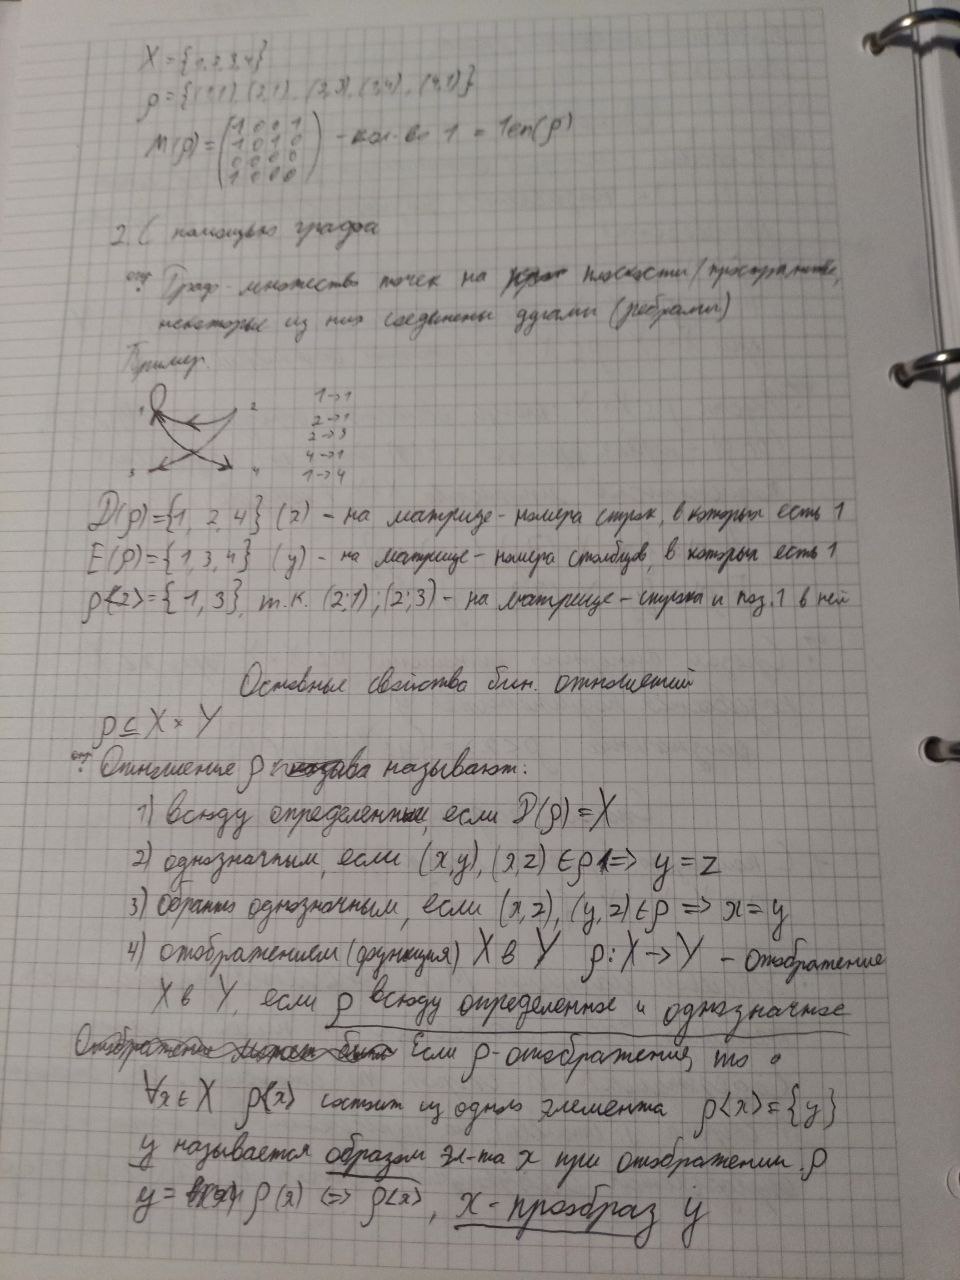 X = {1, 2, 3, 4}
ρ = {(1,1), (2,1), (2,3), (1,4), (4,1)}
M(ρ) = (1 0 0 1
1 0 1 0
0 0 0 0
1 0 0 0) - кол-во 1 = len(ρ)
2. С помощью графа
опр Граф - множество точек на плоскости/пространстве,
некоторые из них соединены дугами (ребрами)
Пример.
1 2 1→1
2→1
2→3
4→1
3 4 1→4
D(ρ)={1, 2, 4} (x) - на матрице - номера строк, в которых есть 1
E(ρ)={1, 3, 4} (y) - на матрице - номера столбцов, в которых есть 1
ρ<2>={1, 3}, т.к. (2;1);(2;3) - на матрице - строка и поз. 1 в ней
Основные свойства бин. отношений
ρ ⊆ X × Y
опр Отношение ρ называют:
1) всюду определенным, если D(ρ)=X
2) однозначным, если (x,y), (x,z) ∈ ρ => y = z
3) обратно однозначным, если (x,z), (y,z) ∈ ρ => x = y
4) отображением (функция) X в Y ρ: X → Y - отображение
X в Y, если ρ всюду определенное и однозначное
Если ρ - отображение, то
∀x ∈ X ρ<x> состоит из одного элемента ρ<x>={y}
y называется образом эл-та x при отображении ρ
y = ρ(x) <=> ρ<x>, x - прообраз y